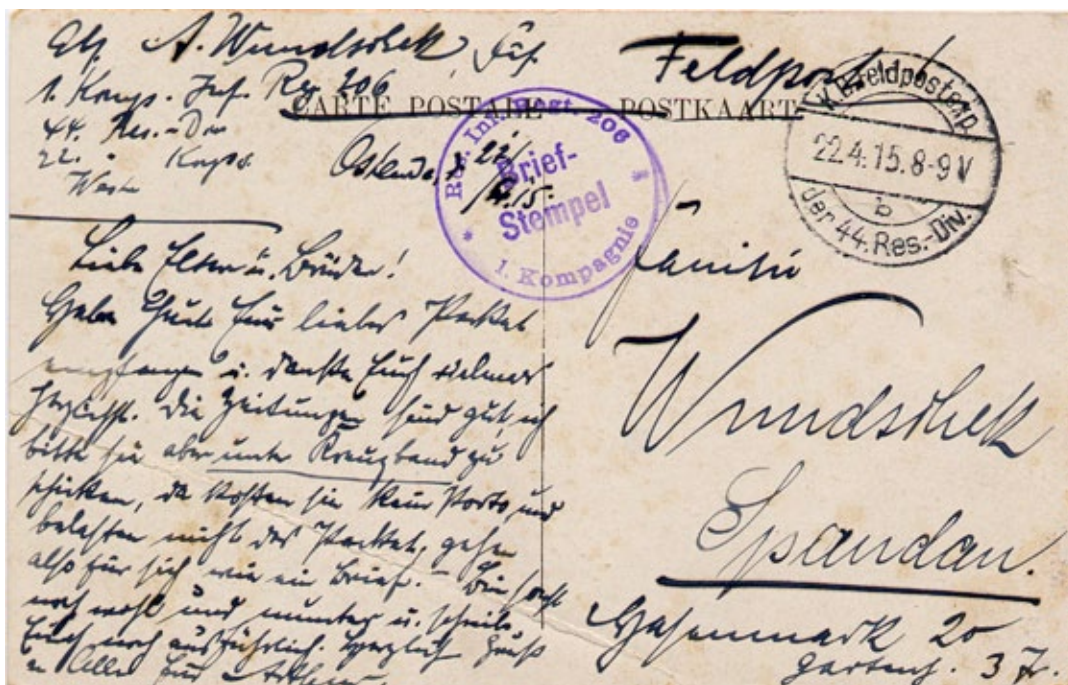 Abs. A. Wundschek, Füs.
1. Komp. Inf. Reg. 206
44. Res.-Div
22. " Korps
Westen
Feldpost
CARTE POSTALE POSTKAART
Res. Inf. Regt. 206
Brief-
Stempel
1. Kompagnie
K.D. Feldpostexp.
22.4.15.8-9V
b
der 44. Res.-Div.
Ostende, 22/
4.15.
Liebe Eltern u. Brüder!
Habe Heute Euer liebes Packet
empfangen u. danke Euch vielmals
herzlichst. Die Zeitungen sind gut, ich
bitte sie aber unter Kreuzband zu
schicken, da kosten sie kein Porto und
belasten nicht das Packet, gehen
also für sich wie ein Brief. – Bin sonst
noch wohl und munter u. schreibe
Euch noch ausführlich. Herzlich Gruß
an Alle Euer Arthur.
Familie
Wundschek
Spandau.
Hasenmark 20
Gartenh. 3 Tr.